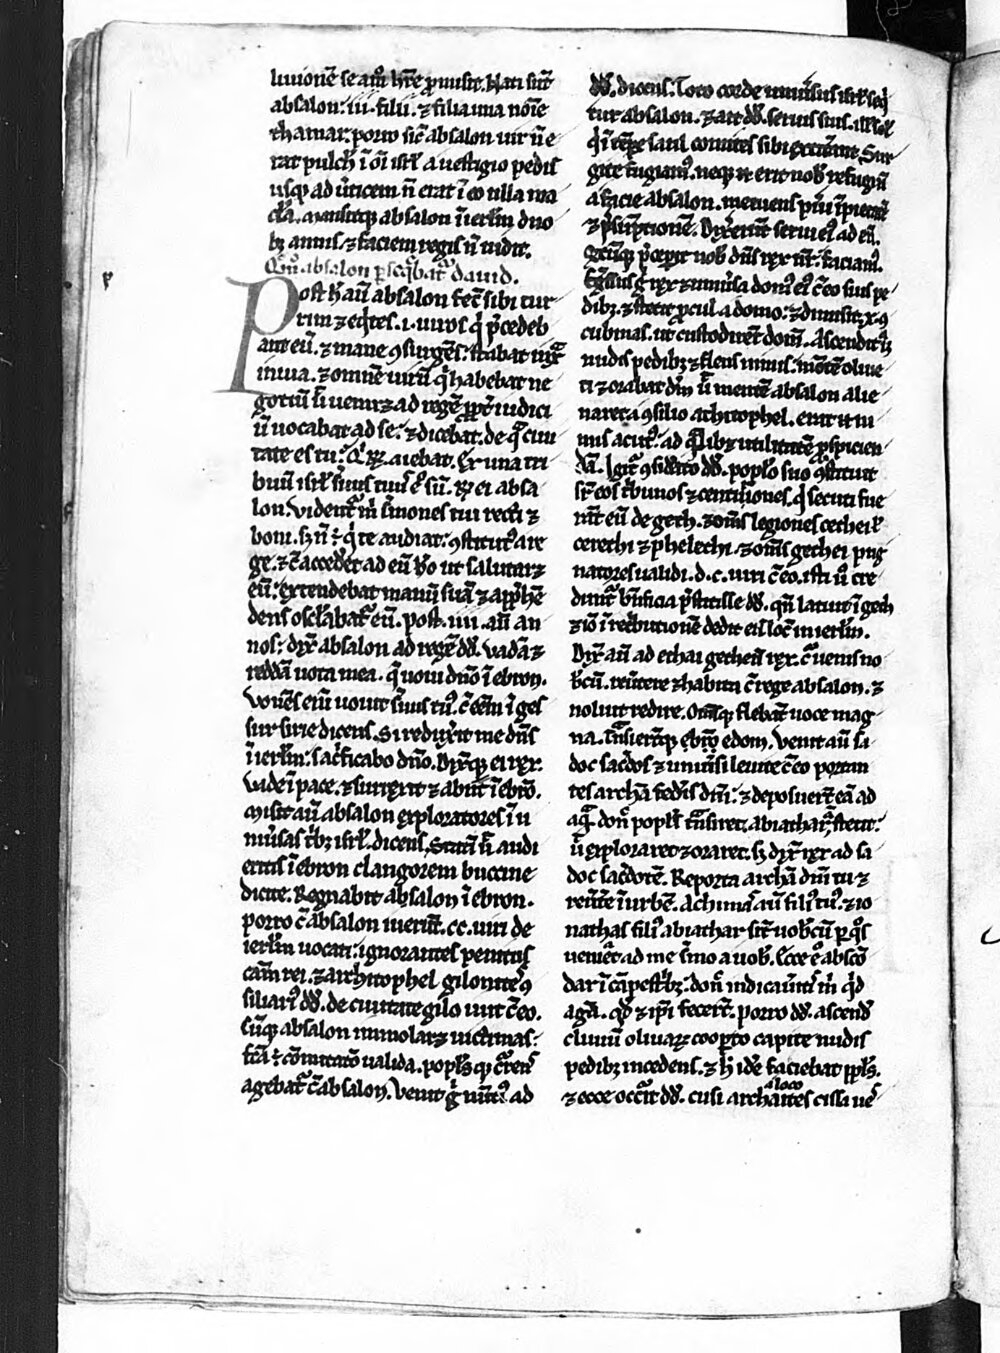 liuionē se am̄ hr̄e ꝓmisit. Nati sūt
absalon .iii. filii. ⁊ filia una noīe
thamar. porro sic̄ absalon uir n̄ e
rat pulch̄ ī oī isrl̄ a uestigio pedis
usq; ad ūticem n̄ erat ī eo ulla ma
cl̄a. mansitq; absalon ī ierl̄m duo
bȝ annis. ⁊ faciem regis n̄ uidit.
Qūo absalon ꝑseq̄bat᷑ dauid.
Post h̄ aūt absalon fec̄ sibi cur
rum ⁊ eq̄tes .l. uiros q̄ p̄cedeb
ant eū. ⁊ mane ꝯsurgēs. stabat iux̄
ianua. ⁊ omnē uirū q̄ habebat ne
gotiū ut̄ ueniret ad regē ꝓpt̄ iudici
ū uocabat ad se. ⁊ dicebat. de q̄ ciui
tate es tu? Qui aiebat. Ex una tri
buū isrl̄ seruus tuus ego sū. Rn̄ ei absa
lon. Vident᷑ m̄ s̄mones tui recti ⁊
boni. sȝ n̄ ē q̄ te audiat ꝯstitut᷒ a re
ge. ⁊ cū accederet ad eū uiro ut salutaret
eū. extendebat manū suā ⁊ app̄hē
dens oscl̄abat᷑ eū. post .iiii. aūt an
nos. dix̄ absalon ad regē dd̄. Vadā ⁊
reddā uota mea. q̄ uoui dn̄o ī ebron.
Vouēs eīm uouit seruus tu᷒ cū eēm ī ges
sur sirie dicens. Si reduxerit me dn̄s
ī ierl̄m. sac̄ficabo dn̄o. Dixitq; ei rex.
Vade ī pace. ⁊ surrexit ⁊ abiit ī ebrō.
Misit aūt absalon exploratores ī u
niūsas trib; isrl̄. dicens. Statī ut audi
eritis ī ebron clangorem buccine
dicite. Regnabit absalon ī ebron.
porro cū absalon ierūt .cc. uiri de
ierl̄m uocati. ignorantes penitus
cām rei. ⁊ architophel gilonites ꝯ
siliari᷒ dd̄. de ciuitate gilo iuit cū eo.
Cūq; absalon immolaret uictimas.
fc̄a ē ꝯmiratō ualida. popl̄sq; c̄rens
agebat᷑ cū absalon. Venit ḡ nūti᷒ ad
dd̄. dicens. Toto corde uniūsus isrl̄ seq̄
tur absalon. ⁊ ait dd̄. seruis suis.
q̄ ī tēpe saul comites sibi extiterant. Sur
gite fugiam᷒. neq; n̄ erit nob̄ refugiū
a facie absalon. metuens
⁊ p̄sūptionē. Dixerunt serui ei᷒ ad eū.
Qecūq; p̄cepit nob̄ dn̄s rex nr̄. faciam᷒.
Egressus ḡ rex ⁊ uniūsa dom᷒ ei᷒ cū eo suis pe
dibȝ. ⁊ stetit procul a domo. ⁊ dimisit .x. ꝯ
cubinas. ut custodirēt domū. Ascendit
nudis pedibȝ ⁊ flens nimis. mōtē oliue
ti ⁊ orabat dn̄m ut̄ mentē absalon alie
naret a ꝯsilio achitophel. erat n̄ ni
mis acut᷒. ad q̄libet utilitatē ꝓspicien
dā. Igit᷑ ꝯsid̄ato dd̄. popl̄o suo ꝯstituit
sup̄ eos t̄bunos ⁊ centūiones. q̄ secuti fue
rāt eū de geth. ⁊ om̄s legiones cethei ⁊
cerethi ⁊ phelethi. ⁊ om̄s gethei pug
natores ualidi .d.c. uiri cū eo. isti ū cre
dunt᷑ bn̄ficia p̄stitisse dd̄. qn̄ latuit ī geth
⁊ iō ī ret̄butionē dedit eis loc̄ in ierl̄m.
Dix̄ aūt ad ethai getheū rex. cur uenis no
bc̄ū. reūtere ⁊ habita cū rege absalon. ⁊
noluit redire. Om̄sq; flebāt uoce mag
na. Trāsierūtq; edom. Venit aūt sa
doc sac̄dos ⁊ uniūsi leuite cū eo portan
tes archā fed̄is dn̄i. ⁊ deposuer̄t eā ad
aq̄. don̄ popl̄s trāsiret. abiathar stetit
ut exploraret ⁊ oraret. sȝ dix̄ rex ad sa
doc sac̄dotē. Reporta archā dn̄i tu ⁊
reūtere ī urbē. Achimas aūt fili᷒ tu᷒. ⁊ io
nathas fili᷒ abiathar sūt uobc̄ū ꝑ q᷒s
ueniet ad me s̄mo a uob̄. Ecce ego abscō
dar ī cāpestrib;. don̄ indicauitis m̄ q̄d
agā. qd̄ ⁊ ip̄i fecer̄t. porro dd̄. ascend̄
cliuū oliuarȝ cooꝑto capite nudis
pedibȝ incedens. ⁊ h̄ idē faciebat ppl̄s.
loco
⁊ ecce occ̄rit dd̄. cusi architēs cissa ue